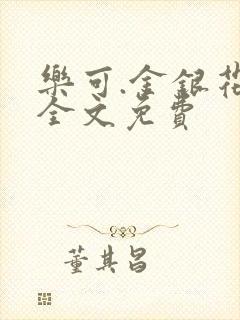 樂可.金銀花
全文免費
董其昌